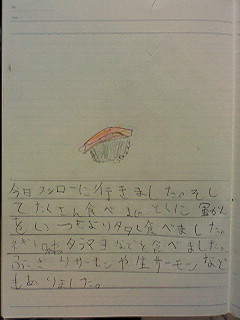 今日スシローに行きました。そし
てたくさん食べました。とくに
をいつもより多く食べました。
タラマヨなどを食べました。
サーモンや生サーモンなど
もありました。